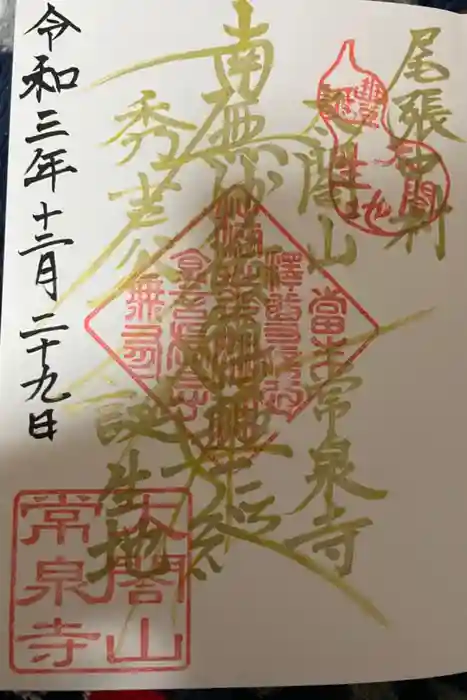 尾張中村
太閤山常泉寺
南無妙法蓮華経
秀吉公誕生地
令和三年十二月二十九日
豊太閤
誕生地
太閤山
常泉寺